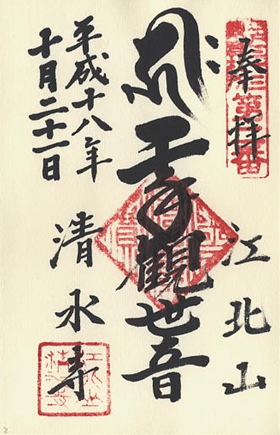 奉拝
江北山
千手觀世音
平成十八年
十月二十一日
清水寺